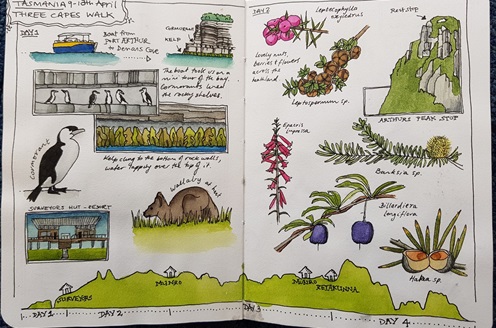 TASMANIA 9-13th April
THREE CAPES WALK
DAY 1
Boat from
PORT ARTHUR
to Denmans Cove
CORMORANTS
KELP
The boat took us on a
mini tour of the bay.
Cormorants lined
the rocky shelves.
Kelp clung to the bottom of rock walls,
water lapping over the top of it.
Cormorant
wallaby at hut
SURVEYORS HUT - RESORT
DAY 2
Leptecophylla
Lovely nuts,
berries & flowers
across the
heathland
Leptospermum sp.
Rest stop
ARTHURS PEAK STOP
Epacris
impressa
Banksia sp.
Billardiera
longiflora
Hakea sp.
SURVEYORS
MUNRO
MUNRO
RETAKUNNA
DAY 1
DAY 2
DAY 3
DAY 4